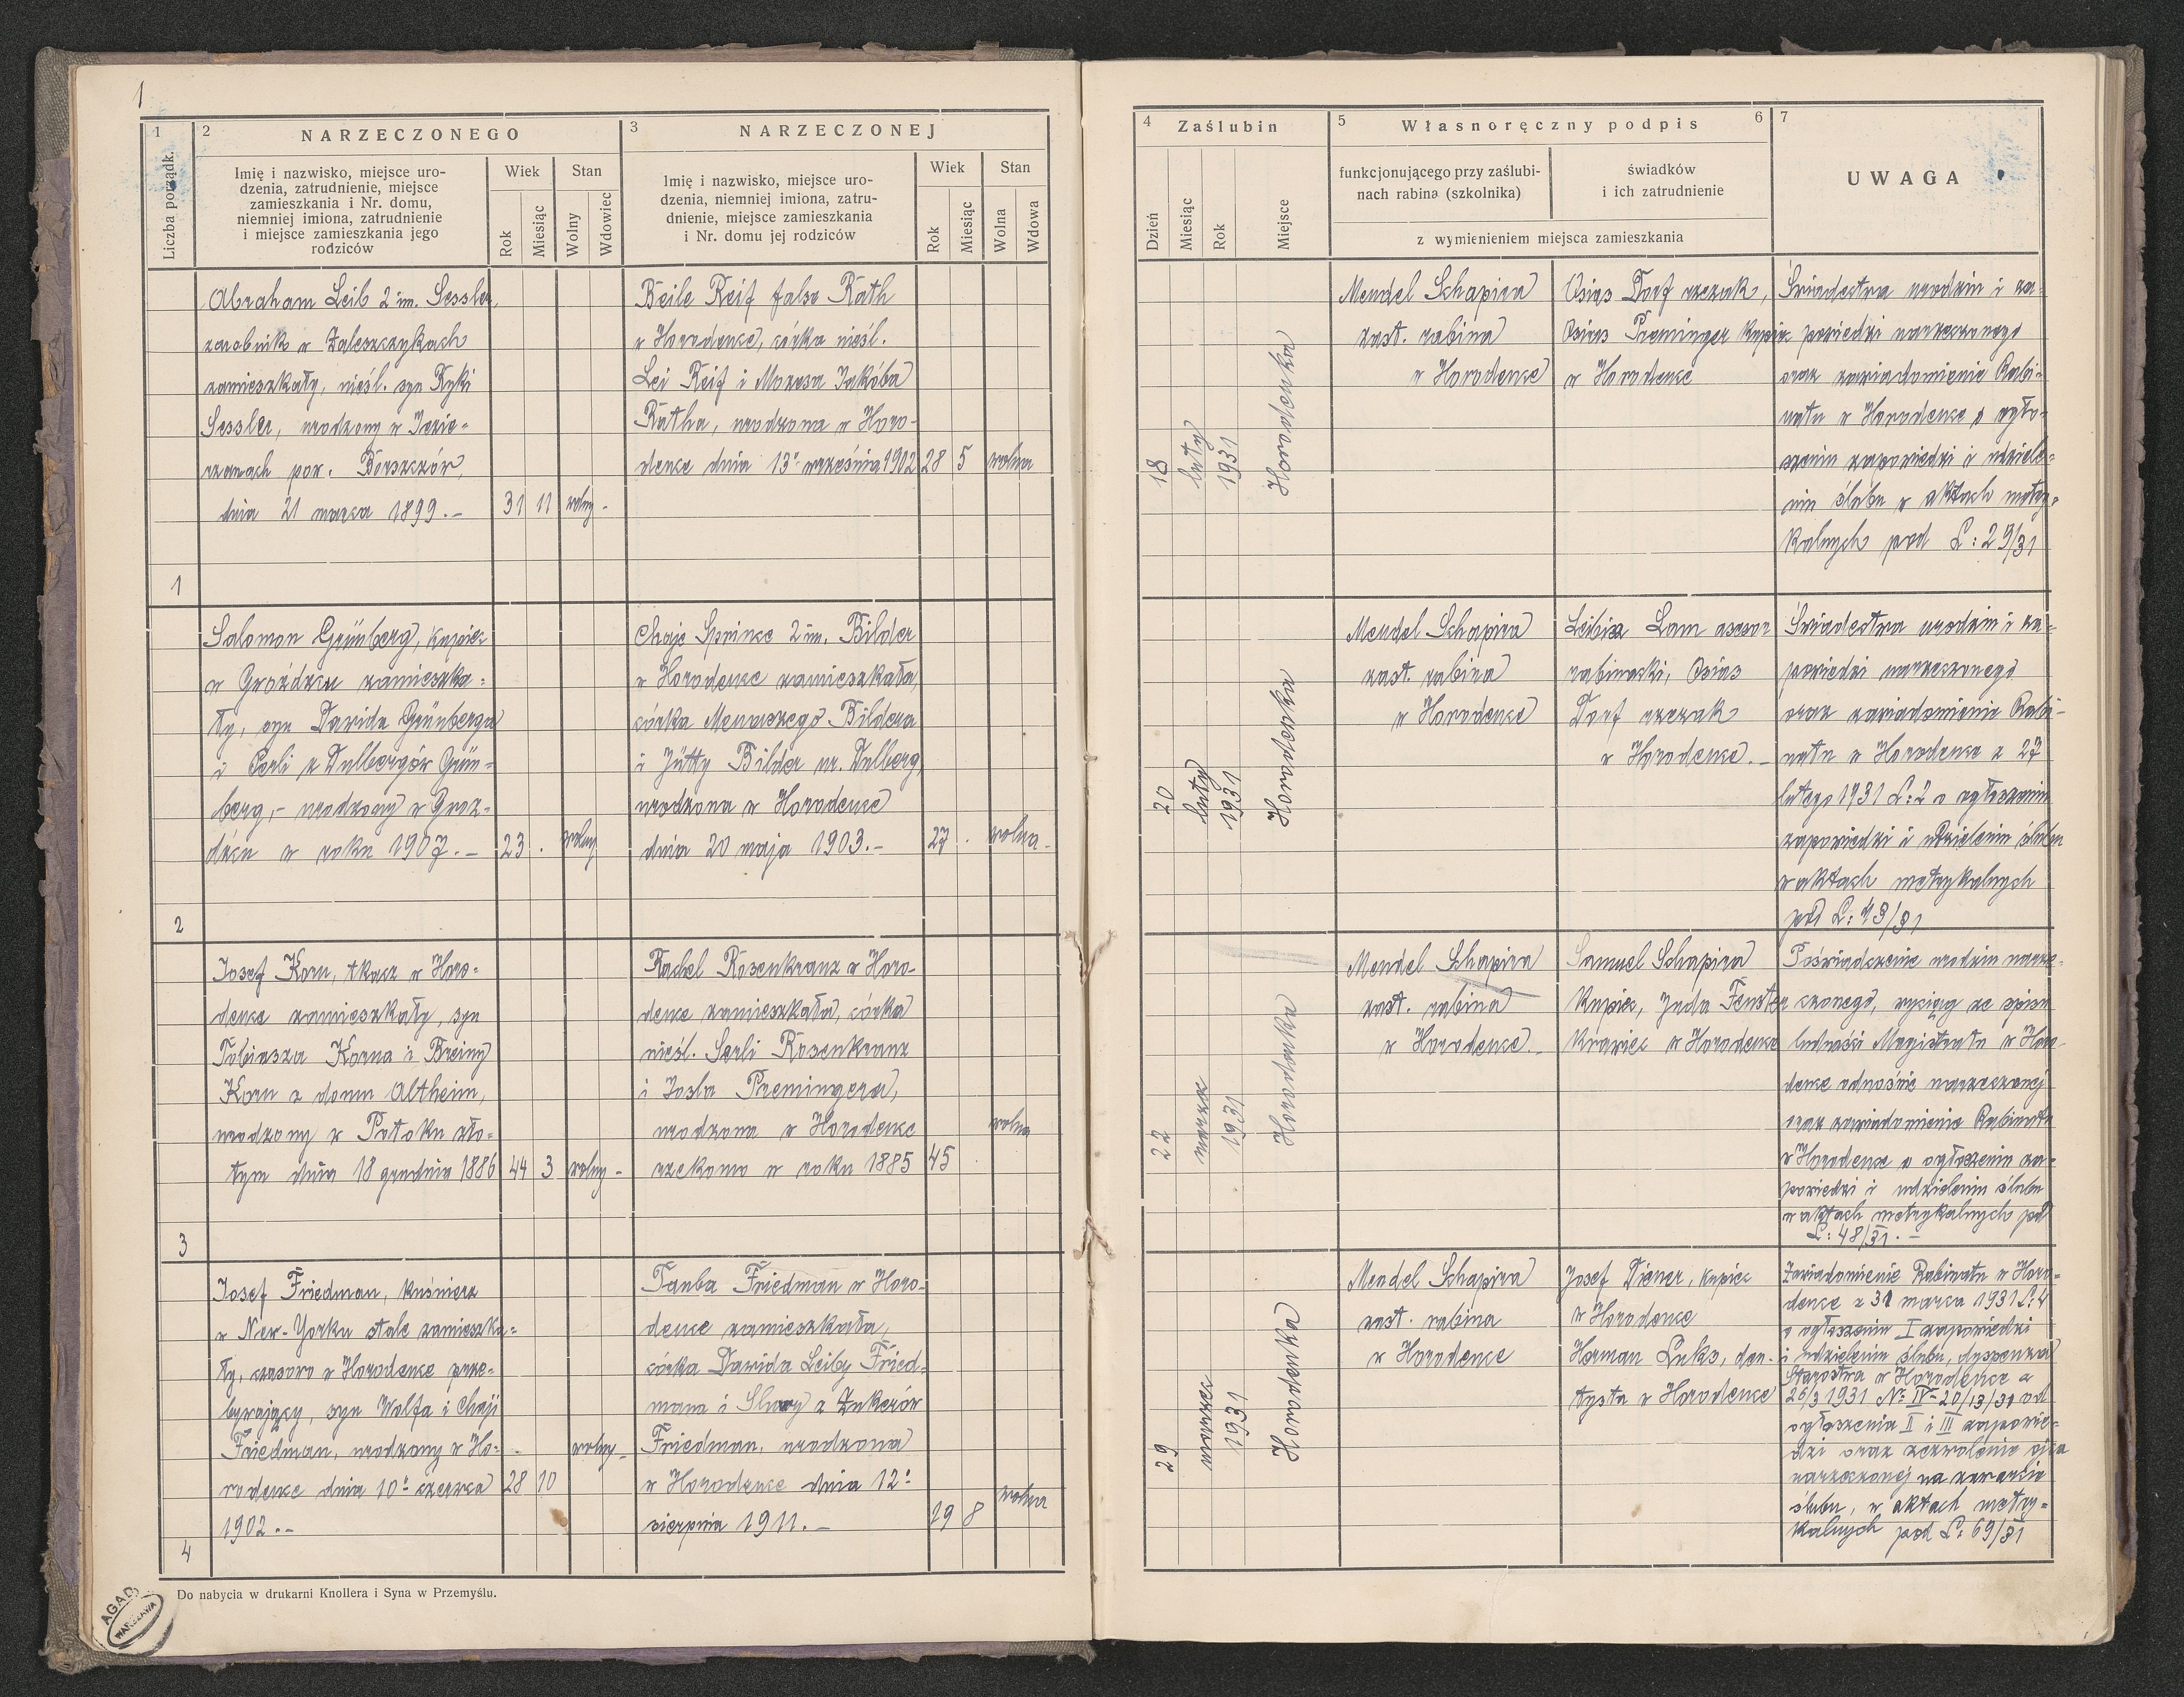 1
1
2
NARZECZONEGO
3
NARZECZONEJ
Liczba porządk.
Imię i nazwisko, miejsce uro-
dzenia, zatrudnienie, miejsce
zamieszkania i Nr. domu,
niemniej imiona, zatrudnienie
i miejsce zamieszkania jego
rodziców
Wiek
Stan
Rok
Miesiąc
Wolny
Wdowiec
Imię i nazwisko, miejsce uro-
dzenia, niemniej imiona, zatru-
dnienie, miejsce zamieszkania
i Nr. domu jej rodziców
Wiek
Stan
Rok
Miesiąc
Wolna
Wdowa
4
Zaślubin
5
Własnoręczny podpis
6
7
Dzień
Miesiąc
Rok
Miejsce
funkcjonującego przy zaślubi-
nach rabina (szkolnika)
świadków
i ich zatrudnienie
z wymienieniem miejsca zamieszkania
UWAGA
1
Abraham Leib 2 im. Sessler,
zarobnik w Zaleszczykach
zamieszkały, nieśl. syn Ryki
Sessler, urodzony w Jezie-
rzanach pow. Borszczów,
dnia 21 marca 1899.-
31 11 wolny -
Beile Reif false Rath
w Horodence, córka nieśl.
Lei Reif i Mozesa Jakóba
Ratha, urodzona w Horo-
dence dnia 13 września 1902
28 5 wolna
18
luty
1931
Horodenka
Mendel Schapira
zast. rabina
w Horodence
Osias Dorf rzezak,
Osias Preminger kupiec
w Horodence
Świadectwa urodzin i za-
powiedzi narzeczonego
oraz zawiadomienie Rabi-
natu w Horodence o ogło-
szeniu zapowiedzi i udziele-
niu ślubu w aktach metry-
kalnych pod L: 29/31
2
Salomon Grünberg, kupiec
w Groźdzcu zamieszka-
ły, syn Dawida Grünberga
i Perli z Dulbergów Grün-
berg,- urodzony w Groź-
dźcu w roku 1907.-
23 . wolny
Chaje Sprince 2 im. Bilder
w Horodence zamieszkała,
córka Menaszego Bildera
i Jütty Bilder ur. Dulberg,
urodzona w Horodence
dnia 20 maja 1903.-
27 . wolna -
20
luty
1931
Horodenka
Mendel Schapira
zast. rabina
w Horodence
Lam asesor
rabinacki, Osias
Dorf rzezak
w Horodence.-
Świadectwa urodzin i za-
powiedzi narzeczonego
oraz zawiadomienie Rabi-
natu w Horodence z 27
lutego 1931 L:2 o ogłoszeniu
zapowiedzi i udzieleniu ślubu
w aktach metrykalnych
pod L: 43/31
3
Josef Korn, tkacz w Horo-
dence zamieszkały, syn
Tobiasza Korna i Breiny
Korn z domu Altheim,
urodzony w Potoku zło-
tym dnia 18 grudnia 1886
44 3 wolny -
Rachel Rosenkranz w Horo-
dence zamieszkała, córka
nieśl. Serli Rosenkranz
i Josla Premingera,
urodzona w Horodence
rzekomo w roku 1885
45 . wolna
22
marzec
1931
Horodenka
Mendel Schapira
zast. rabina
w Horodence.-
Samuel Schapira
Kupiec, Juda Fenster
Krawiec w Horodence
Poświadczenie urodzin narze-
czonego, wyciąg ze spisu
ludności Magistratu w Horo-
dence odnośnie narzeczonej
oraz zawiadomienie Rabinatu
w Horodence o ogłoszeniu za-
powiedzi i udzieleniu ślubu
w aktach metrykalnych pod
L: 48/31.-
4
Josef Friedman, kuśnierz
w New-Yorku stale zamieszka-
ły, czasowo w Horodence prze-
bywający, syn Wolfa i Chaji
Friedman, urodzony w Ho-
rodence dnia 10 czerwca
1902.-
28 10 wolny -
Taube Friedman w Horo-
dence zamieszkała,
córka Dawida Leiby Fried-
mana i z Zukerów
Friedman, urodzona
w Horodence dnia 12
sierpnia 1911.-
19 8 wolna
29
marzec
1931
Horodenka
Mendel Schapira
zast. rabina
w Horodence
Josef Diener, kupiec
w Horodence
Herman Luks, den-
tysta w Horodence
Zawiadomienie Rabinatu w Horo-
dence z 31 marca 1931 L:4
o ogłoszeniu I zapowiedzi
i udzieleniu ślubu, dyspenza
Starostwa w Horodence z
26/3 1931 № IV-20/13/31 od
ogłoszenia II i III zapowie-
dzi oraz zezwolenie ojca
narzeczonej na zawarcie
ślubu, w aktach metry-
kalnych pod L: 69/31
Do nabycia w drukarni Knollera i Syna w Przemyślu.
AGAD
WARSZAWA